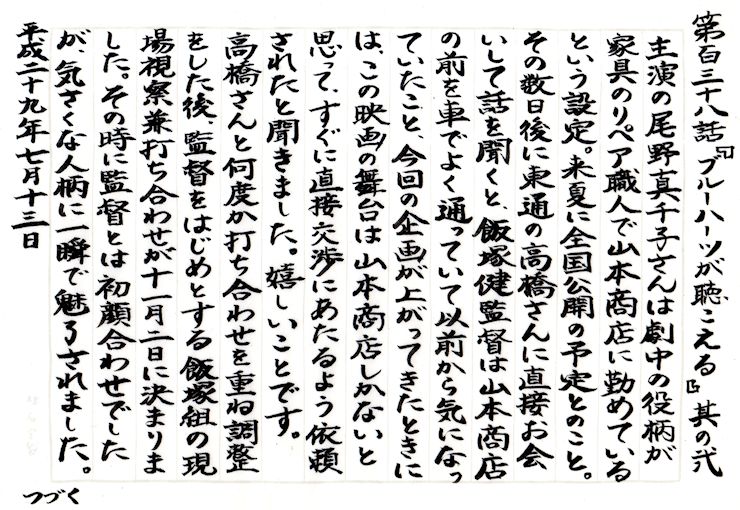 第百三十八話『ブルーハーツが聴こえる』其の弐
主演の尾野真千子さんは劇中の役柄が
家具のリペア職人で山本商店に勤めている
という設定。来夏に全国公開の予定とのこと。
その数日後に東通の高橋さんに直接お会
いして話を聞くと、飯塚健監督は山本商店
の前を車でよく通っていて以前から気になっ
ていたこと、今回の企画が上がってきたときに
は、この映画の舞台は山本商店しかないと
思って、すぐに直接交渉にあたるよう依頼
されたと聞きました。嬉しいことです。
高橋さんと何度か打ち合わせを重ね調整
をした後、監督をはじめとする飯塚組の現
場視察兼打ち合わせが十一月二日に決まりま
した。その時に監督とは初顔合わせでした
が、気さくな人柄に一瞬で魅了されました。
平成二十九年七月十三日
つづく